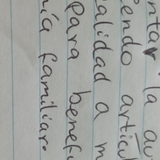 ntar la au
ando artícul
alidad a m
para benefi
ía familiar